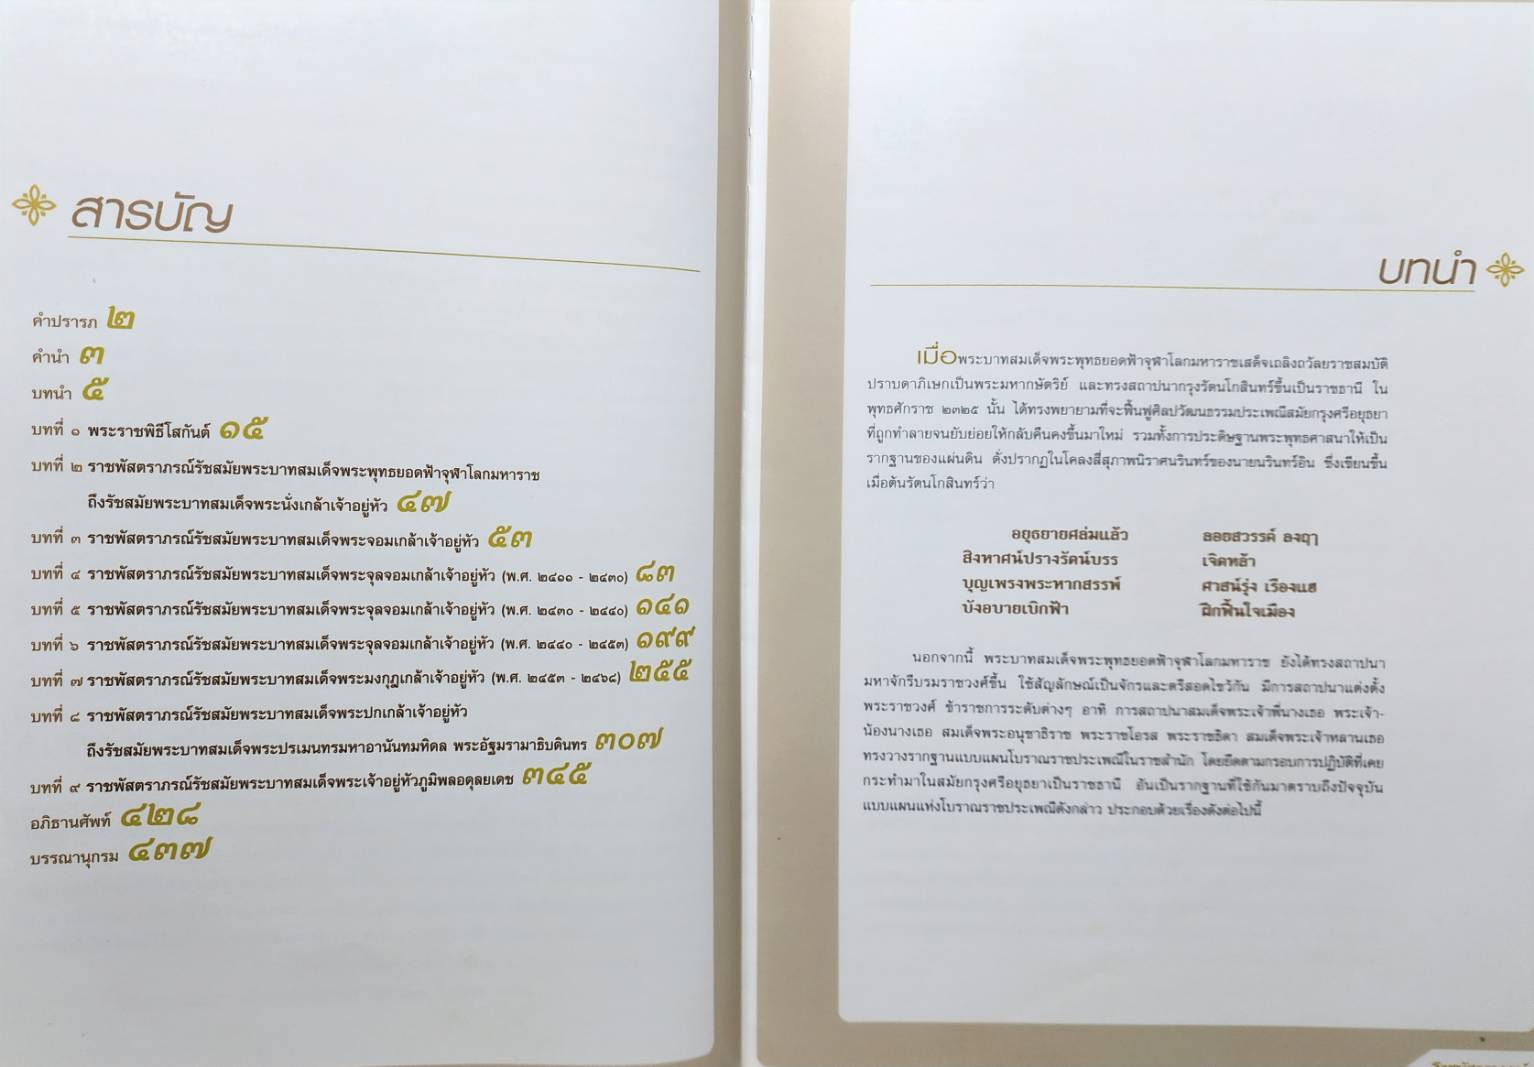 สารบัญ
คำปรารภ ๒
คำนำ ๓
บทนำ ๕
บทที่ ๑ พระราชพิธีโสกันต์ ๑๕
บทที่ ๒ ราชพัสตราภรณ์รัชสมัยพระบาทสมเด็จพระพุทธยอดฟ้าจุฬาโลกมหาราช
ถึงรัชสมัยพระบาทสมเด็จพระนั่งเกล้าเจ้าอยู่หัว ๔๗
บทที่ ๓ ราชพัสตราภรณ์รัชสมัยพระบาทสมเด็จพระจอมเกล้าเจ้าอยู่หัว ๕๓
บทที่ ๔ ราชพัสตราภรณ์รัชสมัยพระบาทสมเด็จพระจุลจอมเกล้าเจ้าอยู่หัว (พ.ศ. ๒๔๑๑ - ๒๔๓๐) ๘๓
บทที่ ๕ ราชพัสตราภรณ์รัชสมัยพระบาทสมเด็จพระจุลจอมเกล้าเจ้าอยู่หัว (พ.ศ. ๒๔๓๐ - ๒๔๔๐) ๑๔๑
บทที่ ๖ ราชพัสตราภรณ์รัชสมัยพระบาทสมเด็จพระจุลจอมเกล้าเจ้าอยู่หัว (พ.ศ. ๒๔๔๐ - ๒๔๕๓) ๑๙๙
บทที่ ๗ ราชพัสตราภรณ์รัชสมัยพระบาทสมเด็จพระมงกุฎเกล้าเจ้าอยู่หัว (พ.ศ. ๒๔๕๓ - ๒๔๖๘) ๒๕๕
บทที่ ๘ ราชพัสตราภรณ์รัชสมัยพระบาทสมเด็จพระปกเกล้าเจ้าอยู่หัว
ถึงรัชสมัยพระบาทสมเด็จพระปรเมนทรมหาอานันทมหิดล พระอัฐมรามาธิบดินทร ๓๐๗
บทที่ ๙ ราชพัสตราภรณ์รัชสมัยพระบาทสมเด็จพระเจ้าอยู่หัวภูมิพลอดุลยเดช ๓๔๕
อภิธานศัพท์ ๔๒๘
บรรณานุกรม ๔๓๗
บทนำ
เมื่อพระบาทสมเด็จพระพุทธยอดฟ้าจุฬาโลกมหาราชเสด็จเถลิงถวัลยราชสมบัติ
ปราบดาภิเษกเป็นพระมหากษัตริย์ และทรงสถาปนากรุงรัตนโกสินทร์ขึ้นเป็นราชธานี ใน
พุทธศักราช ๒๓๒๕ นั้น ได้ทรงพยายามที่จะฟื้นฟูศิลปวัฒนธรรมประเพณีสมัยกรุงศรีอยุธยา
ที่ถูกทำลายจนยับย่อยให้กลับคืนคงขึ้นมาใหม่ รวมทั้งการประดิษฐานพระพุทธศาสนาให้เป็น
รากฐานของแผ่นดิน ดั่งปรากฏในโคลงสี่สุภาพนิราศนรินทร์ของนายนรินทร์อิน ซึ่งเขียนขึ้น
เมื่อต้นรัตนโกสินทร์ว่า
อยุธยายศล่มแล้ว ลอยสวรรค์ ลงฤๅ
สิงหาศน์ปรางรัตน์บรร เจิดหล้า
บุญเพรงพระหากสรรพ์ ศาสน์รุ่ง เรืองแฮ
บังอบายเบิกฟ้า ฝึกฟื้นใจเมือง
นอกจากนี้ พระบาทสมเด็จพระพุทธยอดฟ้าจุฬาโลกมหาราช ยังได้ทรงสถาปนา
มหาจักรีบรมราชวงศ์ขึ้น ใช้สัญลักษณ์เป็นจักรและตรีสอดไขว้กัน มีการสถาปนาแต่งตั้ง
พระราชวงศ์ ข้าราชการระดับต่างๆ อาทิ การสถาปนาสมเด็จพระเจ้าพี่นางเธอ พระเจ้า-
น้องนางเธอ สมเด็จพระอนุชาธิราช พระราชโอรส พระราชธิดา สมเด็จพระเจ้าหลานเธอ
ทรงวางรากฐานแบบแผนโบราณราชประเพณีในราชสำนัก โดยยึดตามกรอบการปฏิบัติที่เคย
กระทำมาในสมัยกรุงศรีอยุธยาเป็นราชธานี อันเป็นรากฐานที่ใช้กันมาตราบถึงปัจจุบัน
แบบแผนแห่งโบราณราชประเพณีดังกล่าว ประกอบด้วยเรื่องดังต่อไปนี้